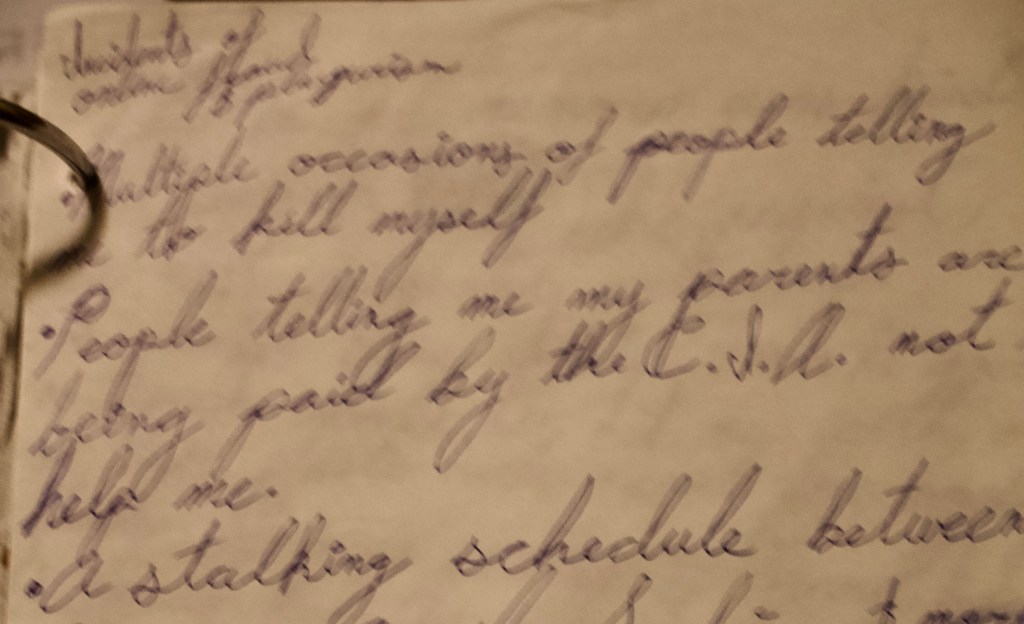 Incidents of
online fraud
& plagiarism
• Multiple occasions of people telling
to kill myself
• People telling me my parents are
being paid by the C.I.A. not
help me.
• A stalking schedule between